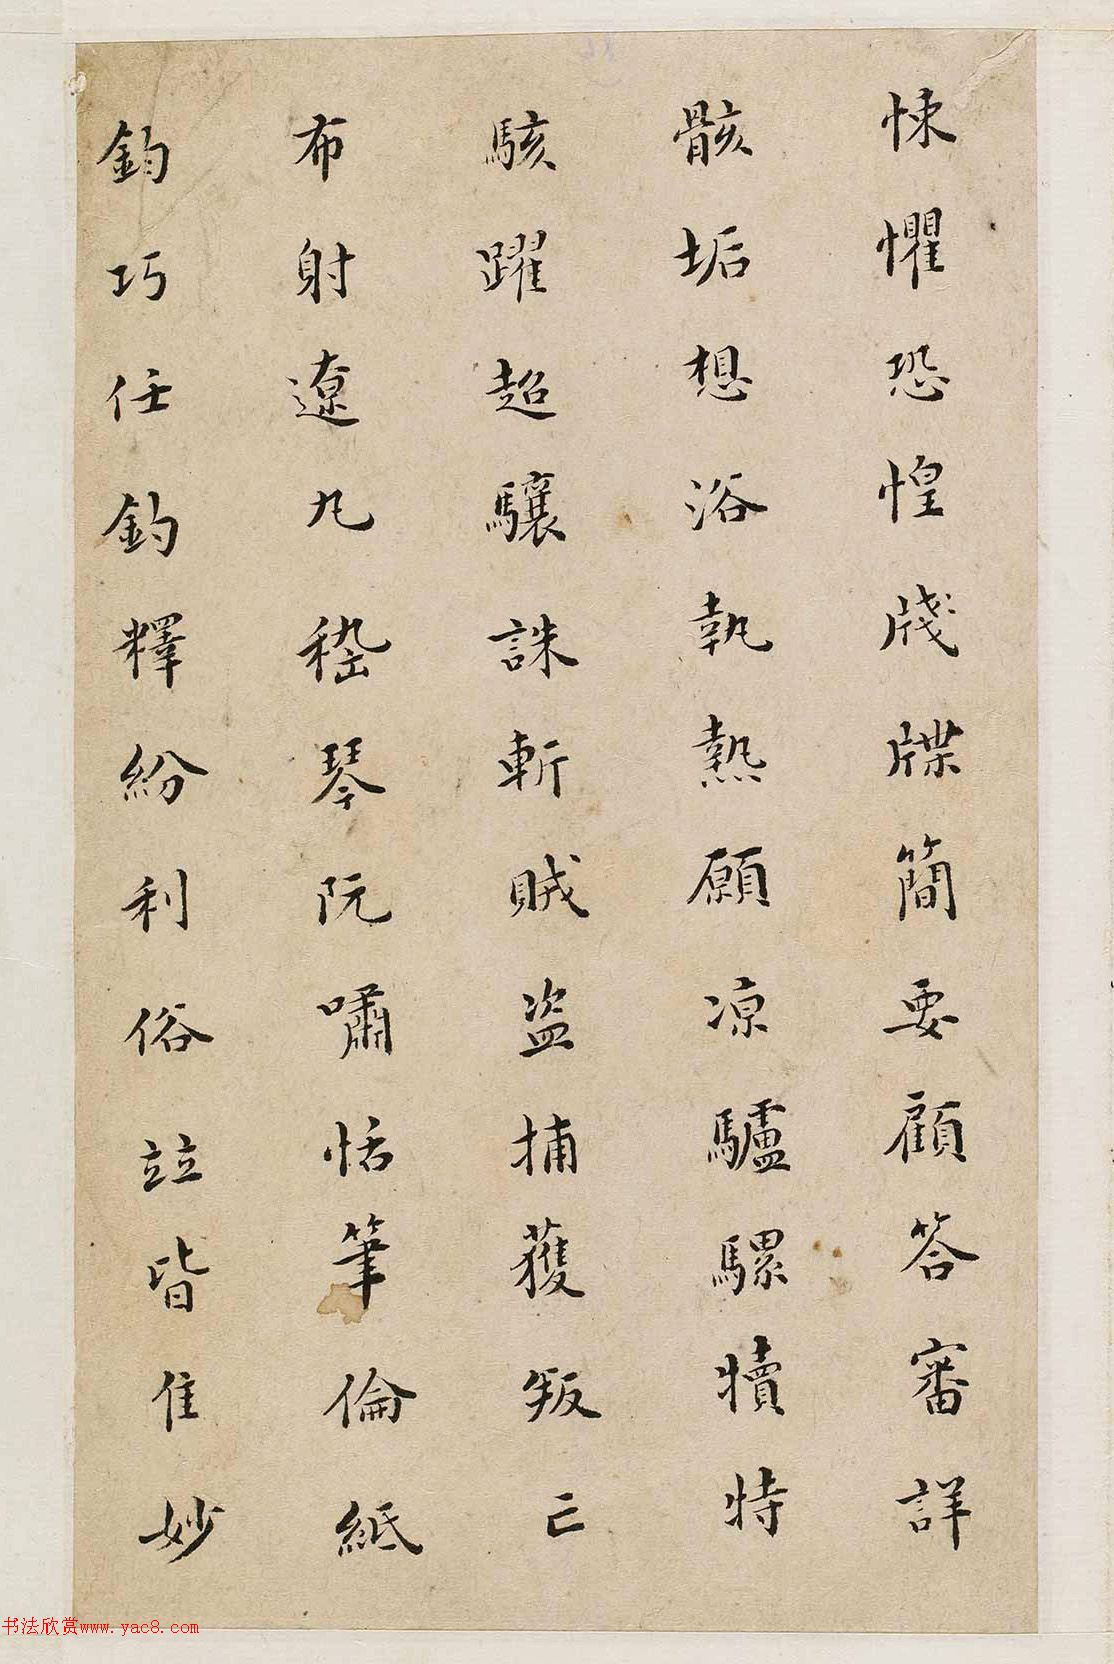 悚懼恐惶牋牒簡要顧答審詳
骸垢想浴執熱願凉驢騾犢特
駭躍超驤誅斬賊盗捕獲叛亡
布射遼丸嵇琴阮嘯恬筆倫紙
鈞巧任釣釋紛利俗竝皆佳妙
书法欣赏www.yac8.com